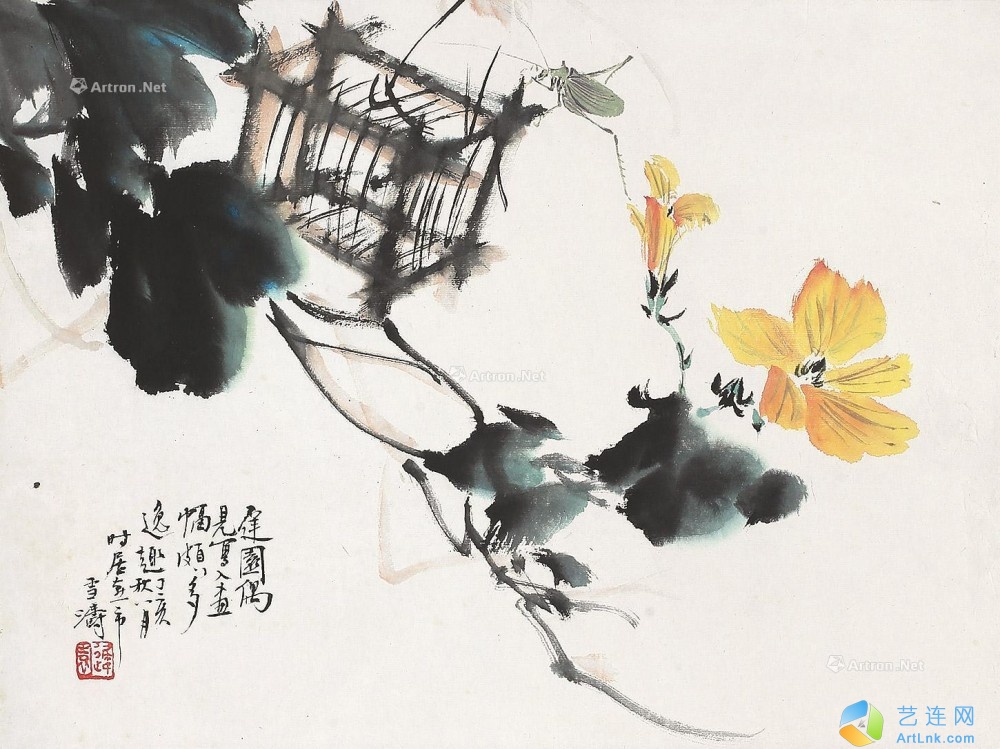 Artron.Net
Artron.Net
Artron.Net
園偶
見寫入畫
幅頗多
逸趣丁亥秋八月
时居市
雪濤
Artron.Net
艺连网
ArtLnk.com